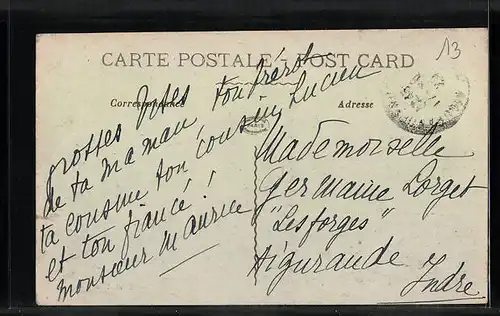 13
CARTE POSTALE - POST CARD
Correspondance
Adresse
grosses bises
de ta maman, ton frérot
ta cousine ton cousin Lucien
et ton fiancé !
Monsieur Maurice
Mademoiselle
Germaine Lorget
"Les forges"
Aigurande
Indre